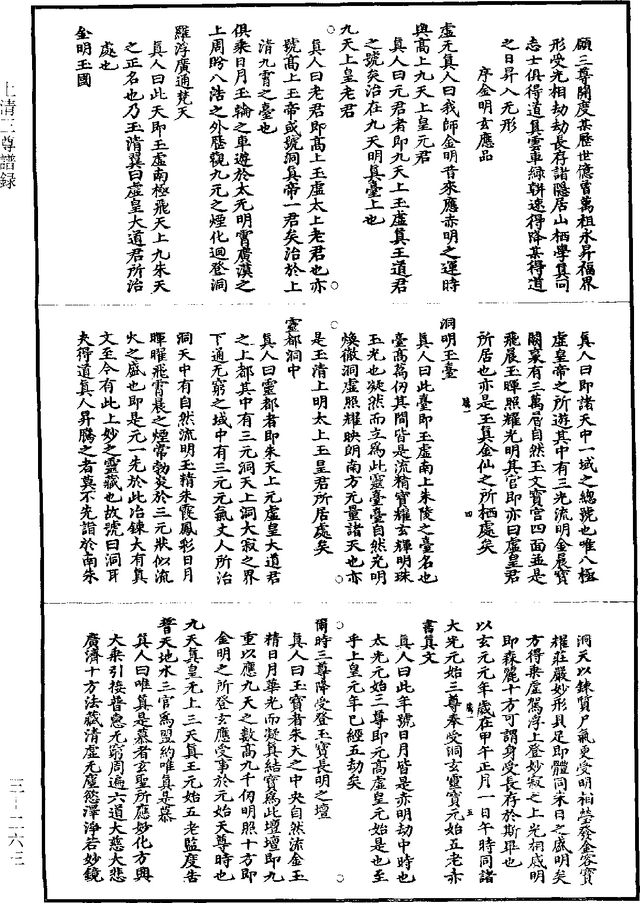 上清三尊譜録
願三尊開度某歷世億曾萬祖永昇福界
形受光相劫劫長存諸隱居山栖學真同
志士俱得道真雲車緑軿速得降某得道
之日昇入无形
序金明玄應品
虛无真人曰我師金明昔來應赤明之運時
與高上九天上皇元君
真人曰元君者即九天上王虛真王道君
之號矣治在九天明真臺上也
九天上皇老君
真人曰老君即高上玉虛太上老君也亦
號高上玉帝或號洞真帝一君矣治於上
清九霄之臺也
俱乘日月玉輪之車遊於太无明霄廣漠之
上周眄八浩之外歷觀九元之煙化迴登洞
羅浮廣通梵天
真人曰此天即玉虛南極飛天上九朱天
之正名也乃玉清翼曰虛皇大道君所治
處也
金明玉國
真人曰即諸天中一域之總號也唯八極
虛皇帝之所遊其中有三光流明金晨寶
闕稟有三萬層自然玉文寶宫四面並是
飛晨玉暉照耀光明其官即亦曰虛皇君
所居也亦是玉真金仙之所栖處矣
洞明玉臺
真人曰此臺即玉虛南上朱陵之臺名也
臺高萬仞其間皆是流精寶耀玄輝明珠
玉光也凝然而立爲此靈臺臺自然光明
煥徹洞虛照耀映朗南方无量諸天也亦
是玉清上明太上玉皇君所居處矣
靈都洞中
真人曰靈都者即朱天上元虛皇大道君
之上都其中有三元洞天上洞大寂之界
下通无窮之域中有三元元氣丈人所治
洞天中有自然流明玉精朱霞鳳彩日月
暉曜飛霄晨之煙常勃炎於三元狀似流
火之盛也即是元一先於此冶鍊大有真
文至今有此上妙之靈藏也故號曰洞耳
夫得道真人昇騰之者莫不先詣於南朱
洞天以鍊質尸氣更受明相瑩發金容寶
耀莊嚴妙形具足即體同朱日之盛明矣
方得乘虛駕浮上登妙寂之上光相威明
即森麗十方可謂身受長存於斯畢也
以玄元元年歲在甲午正月一日午時同諸
大光元始三尊奉受洞玄靈寶元始五老赤
書真文
真人曰此年號日月皆是赤明劫中時也
太光元始三尊即元高虛皇元始是也至
乎上皇元年已經五劫矣
爾時三尊降受登玉寶長明之壇
真人曰玉寶者朱天之中央自然流金玉
精日月華光而凝真結寶爲此壇壇即九
重以應九天之數高九千仞明照十方即
金明之所登玄應受事於元始天尊時也
九天真皇无上三天真王元始五老監度告
普天地水三官爲盟約唯真是慕
真人曰唯真是慕者玄聖所應妙化方與
大乘引接普愍无窮周遍六道大慈大悲
廣濟十方法藏清虛无塵慾澤淨若妙鏡